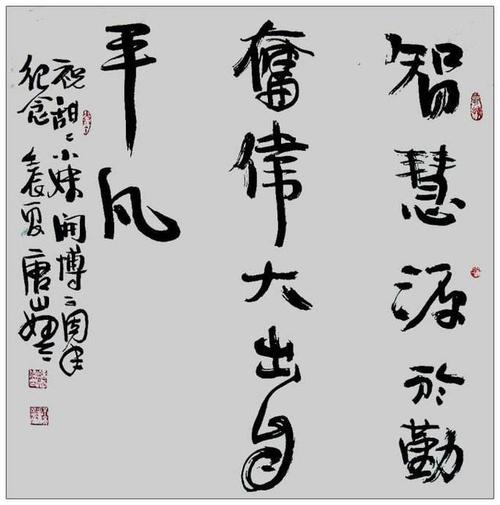 智慧源於勤
奮偉大出自
平凡
祝甜々小妹開博二周年
纪念 壬辰夏 唐山